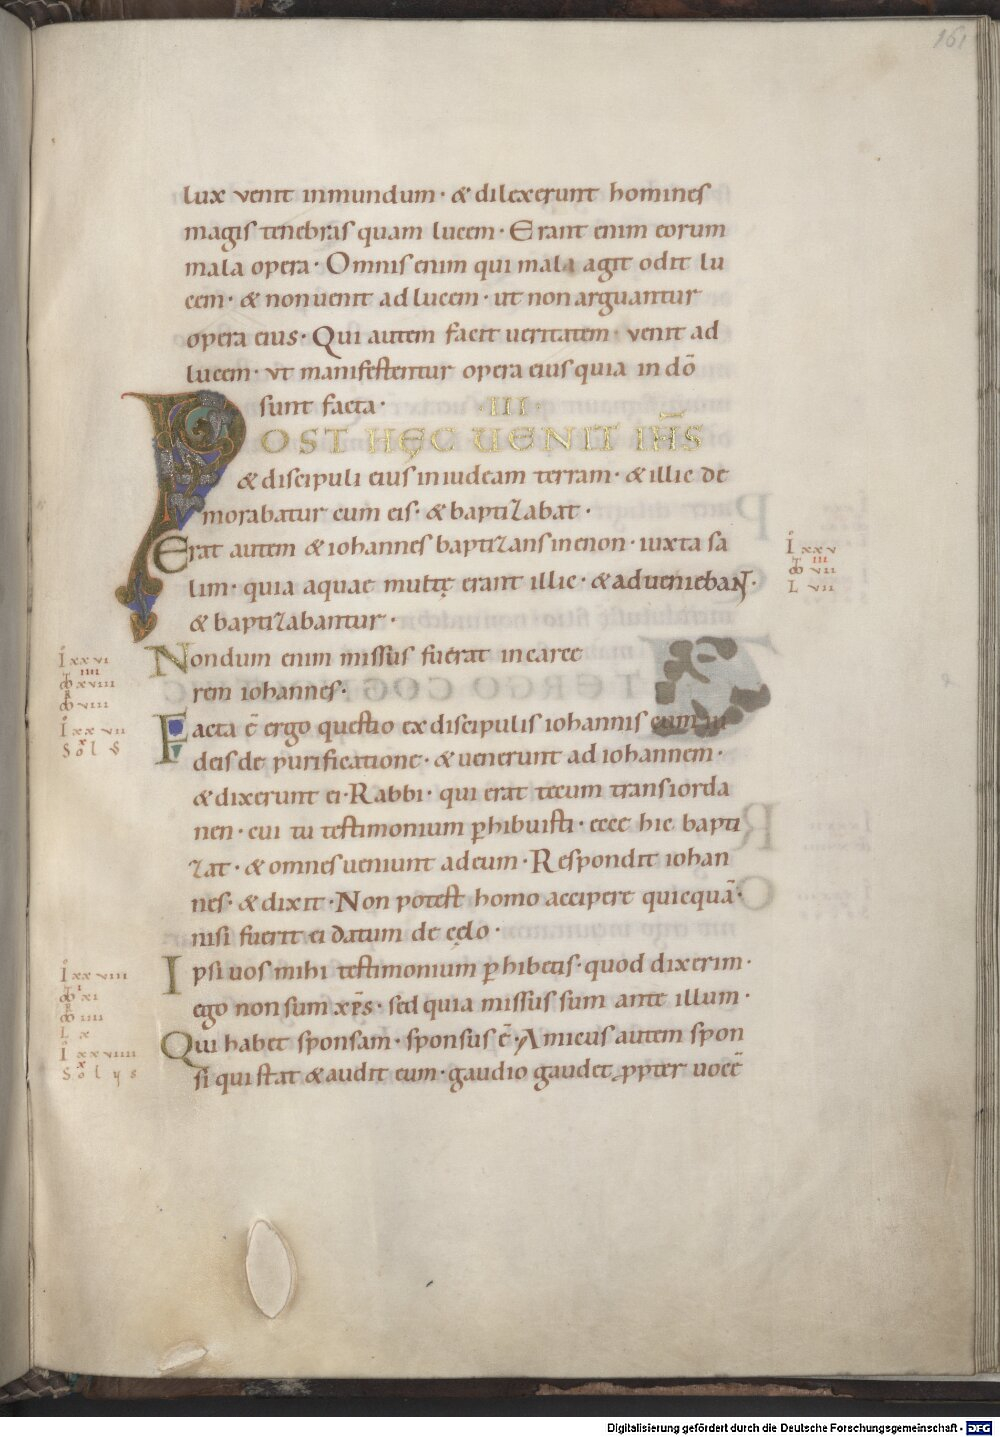 161
lux venit inmundum · & dilexerunt homines
magis tenebras quam lucem · Erant enim eorum
mala opera · Omnis enim qui mala agit odit lu
cem · & non uenit ad lucem · ut non arguantur
opera eius · Qui autem facit ueritatem · venit ad
lucem · vt manifestentur opera eius quia in dō
sunt facta · ·III·
POST HĘC UENIT IH̄S
& discipuli eius in iudeam terram · & illic de
morabatur cum eis · & baptizabat ·
Erat autem & iohannes baptizans in enon · iuxta sa
lim · quia aquae multę erant illic · & adueniebant ·
& baptizabantur ·
Nondum enim missus fuerat in carce
rem iohannes ·
Facta ē ergo questio ex discipulis iohannis cum iu
deis de purificatione · & uenerunt ad iohannem ·
& dixerunt ei · Rabbi · qui erat tecum trans iorda
nen · cui tu testimonium phibuisti · ecce hic bapti
zat · & omnes ueniunt ad eum · Respondit iohan
nes · & dixit · Non potest homo accipere quicquā ·
nisi fuerit ei datum de cęlo ·
Ipsi uos mihi testimonium phibetis · quod dixerim ·
ego non sum xp̄s · sed quia missus sum ante illum ·
Qui habet sponsam · sponsus ē · Amicus autem spon
si qui stat & audit eum · gaudio gaudet ppter uocē
I xxv
III
VII
L VII
I xxvi
IIII
xviii
viii
I xxvii
Sol S
I xxviii
I
xi
IIII
L x
I xxviiii
Digitalisierung gefördert durch die Deutsche Forschungsgemeinschaft - DFG